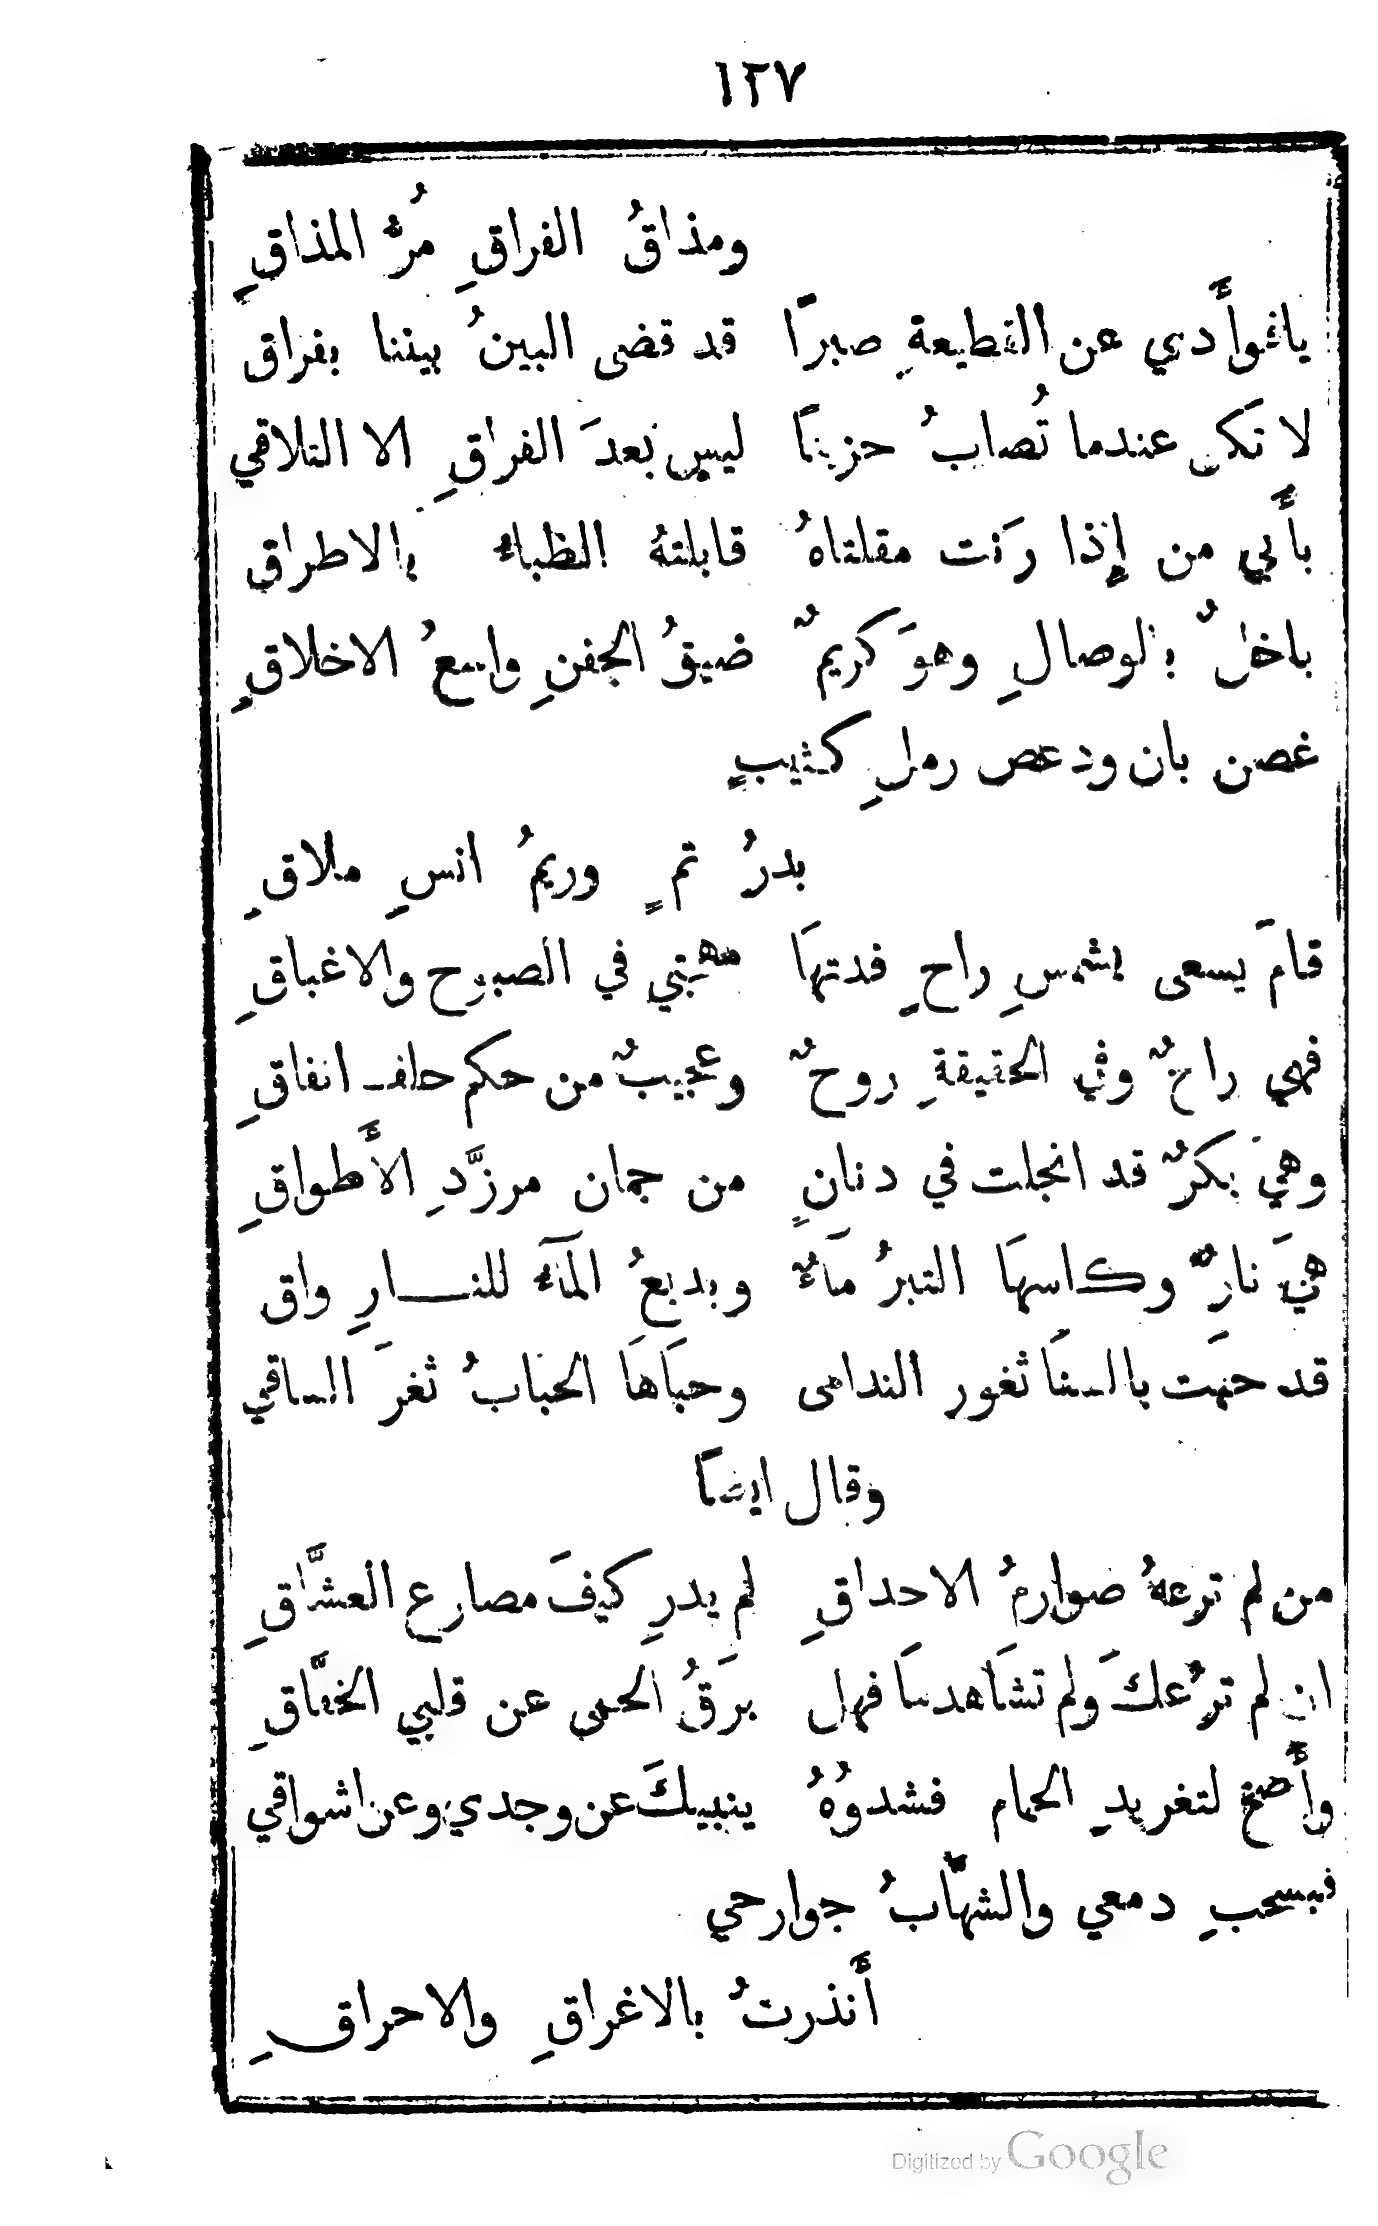 ١٢٧
ومذاقُ الفراقِ مُرُّ المذاقِ
يافوأَدي عن القطيعةِ صبرًا قد قضى البينُ بيننا بفراق
لا تكن عندما تُصابُ حزينًا ليس بَعدَ الفراقِ الا التلاقي
بأَبي من إِذا رَنت مقلتاهُ قابلتهُ الظباء بالاطراق
باخلٌ بالوصالِ وهوَ كريمٌ ضيقُ الجفنِ واسعُ الاخلاقِ
غصن بان ودعص رملِ كثيبٍ
بدرُ تمٍ وريمُ انسِ ملاقِ
قامَ يسعى بشمسِ راحٍ فدتهَا مهجتي في الصبوح والاغباقِ
فهي راحٌ وفي الحقيقةِ روحٌ وعجيبٌ من حكم حلف انفاقِ
وهيَ بكرٌ قد انجلت في دنانٍ من جمان مرزَّدِ الأَطواقِ
هيَ نارٌ وكاسهَا التبرُ مَاءٌ وبديعُ المَآء للنارِ واق
قد حمَت بالسنَا ثغور الندامى وحبَاهَا الحَبابُ ثغرَ الساقي
وقال ايضًا
من لم ترعهُ صوارمُ الاحداقِ لم يدرِ كيفَ مصارع العشَّاقِ
ان لم ترُعكَ ولم تشَاهدهَا فهل برَقُ الحمى عن قلبي الخفَّاقِ
وأَصخ لتغريدِ الحمام فشدوُهُ ينبيكَ عن وجدي وعن اشواقي
فبسحبِ دمعي والشهَّابُ جوارحي
أَنذرتُ بالاغراقِ والاحراقِ
Digitized by Google